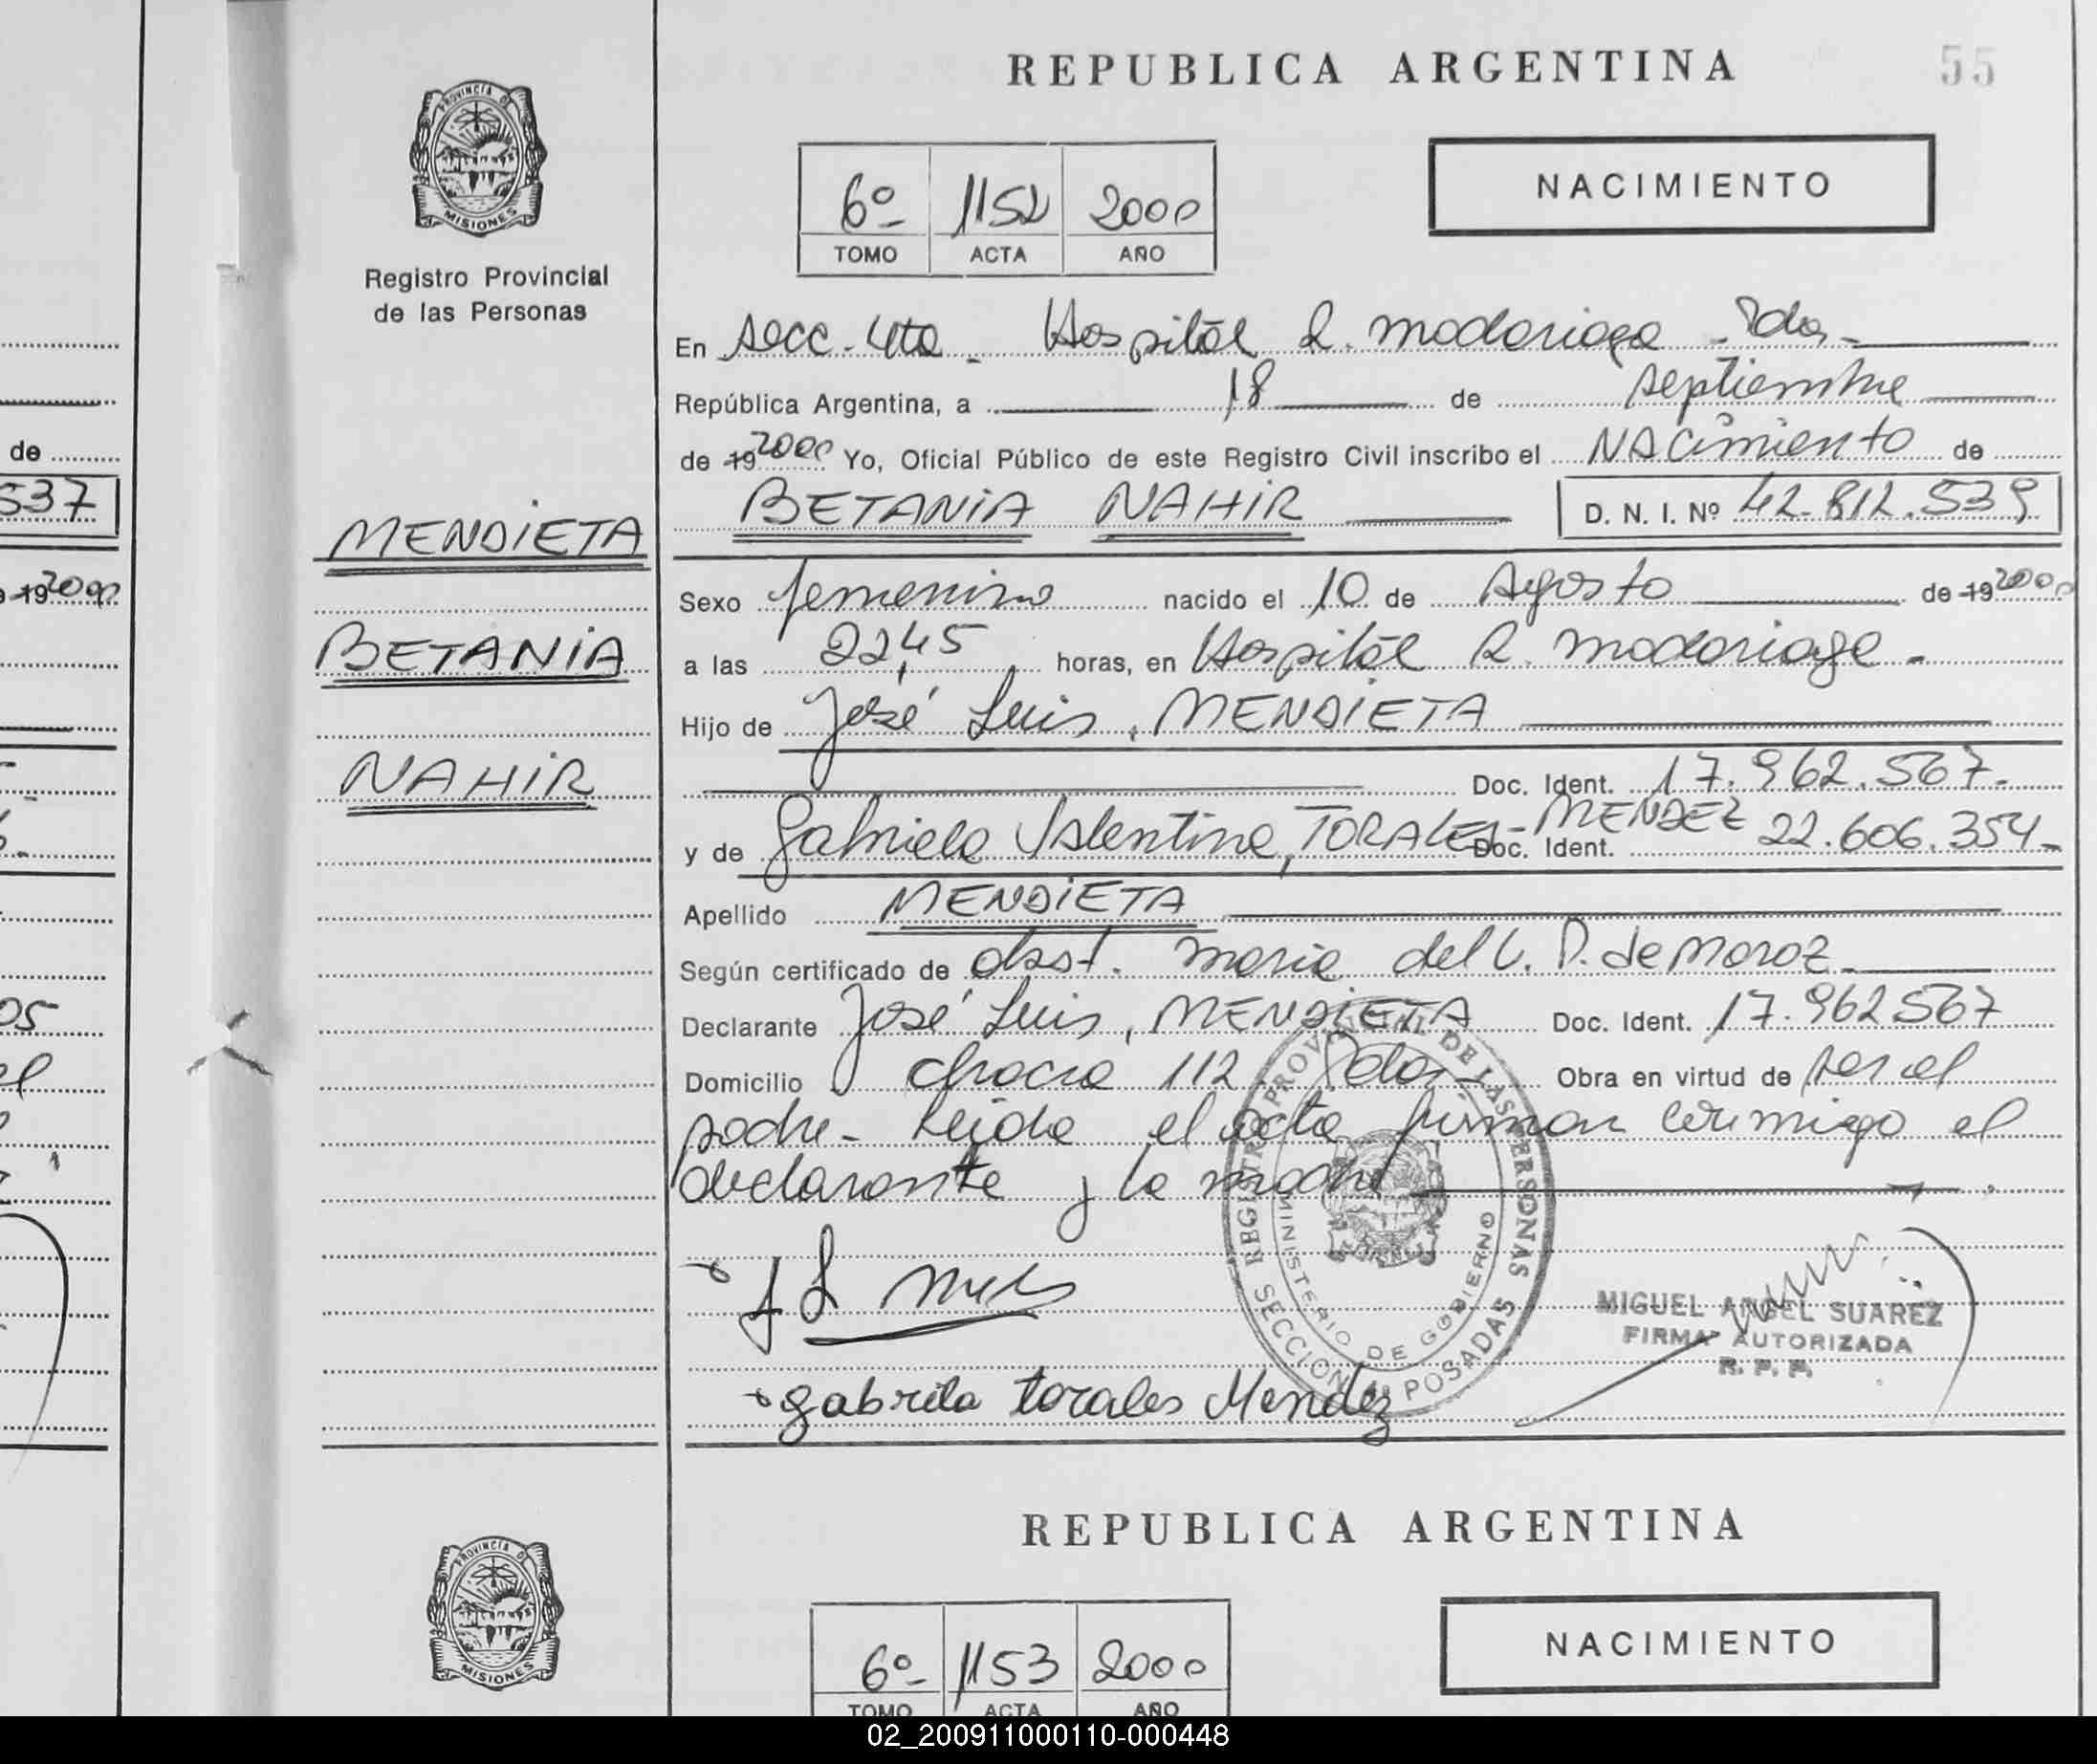 REPUBLICA ARGENTINA
55
PROVINCIA DE
MISIONES
Registro Provincial
de las Personas
6º 1152 2000
TOMO ACTA AÑO
NACIMIENTO
En secc. 4ta - Hospital R. Madariaga - Pdas -
República Argentina, a 18 de septiembre
de 19 2000 Yo, Oficial Público de este Registro Civil inscribo el NACimiento de
BETANiA NAHiR D. N. I. Nº 42.812.539
MENDiETA
BETANiA
NAHiR
Sexo femenino nacido el 10 de Agosto de 19 2000
a las 22,45 horas, en Hospital R. Madariaga -
Hijo de José Luis, MENDiETA
Doc. Ident. 17.962.567.-
y de Gabriela Valentina, TORALES - MENDEZ Doc. Ident. 22.606.354.-
Apellido MENDiETA
Según certificado de obst. Maria del C. P. de Moroz
Declarante José Luis, MENDiETA Doc. Ident. 17.962567
Domicilio chacra 112 - Pdas - Obra en virtud de ser el
padre - Leida el acta firman conmigo el
declarante y la madre
REGISTRO PROVINCIAL DE LAS PERSONAS
MINISTERIO DE GOBIERNO
SECCION 4ª POSADAS
MIGUEL ANGEL SUAREZ
FIRMA AUTORIZADA
R. P. P.
gabriela torales Mendez
REPUBLICA ARGENTINA
PROVINCIA DE
MISIONES
6º 1153 2000
TOMO ACTA AÑO
NACIMIENTO
de
537
19 2000
05
el
02_200911000110-000448